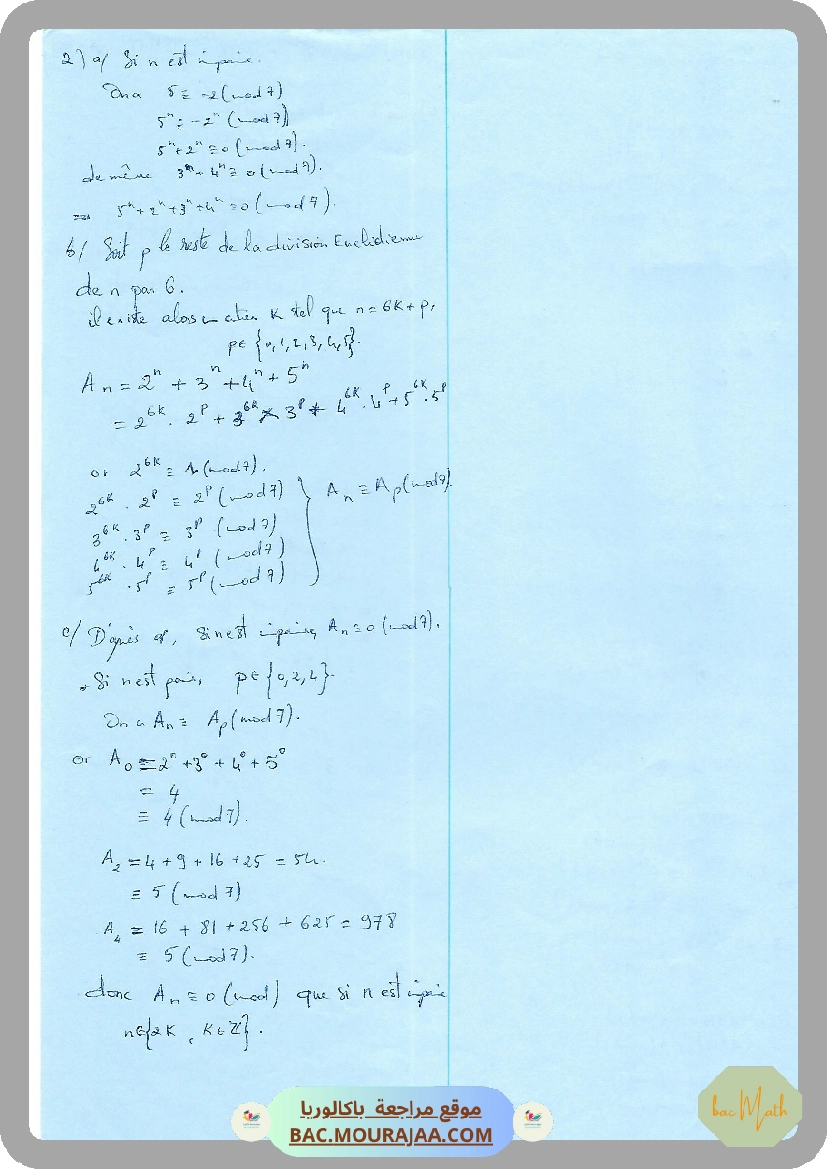 2) a/ Si n est impair.
On a 5 ≡ -2 (mod 7)
5ⁿ ≡ -2ⁿ (mod 7)
5ⁿ + 2ⁿ ≡ 0 (mod 7).
de même 3ⁿ + 4ⁿ ≡ 0 (mod 7).
⟹ 5ⁿ + 2ⁿ + 3ⁿ + 4ⁿ ≡ 0 (mod 7).
b/ Soit p le reste de la division Euclidienne
de n par 6.
il existe alors un entier K tel que n = 6K + p,
p ∈ {0, 1, 2, 3, 4, 5}.
Aₙ = 2ⁿ + 3ⁿ + 4ⁿ + 5ⁿ
= 2^6K . 2^p + 3^6K × 3^p + 4^6K . 4^p + 5^6K . 5^p
or 2^6K ≡ 1 (mod 7).
2^6K . 2^p ≡ 2^p (mod 7) } Aₙ ≡ Aₚ (mod 7).
3^6K . 3^p ≡ 3^p (mod 7)
4^6K . 4^p ≡ 4^p (mod 7)
5^6K . 5^p ≡ 5^p (mod 7)
c/ D'après a/, Si n est impair, Aₙ ≡ 0 (mod 7).
* Si n est pair, p ∈ {0, 2, 4}.
On a Aₙ ≡ Aₚ (mod 7).
or A₀ = 2° + 3° + 4° + 5°
= 4
≡ 4 (mod 7).
A₂ = 4 + 9 + 16 + 25 = 54.
≡ 5 (mod 7)
A₄ = 16 + 81 + 256 + 625 = 978
≡ 5 (mod 7).
donc Aₙ ≡ 0 (mod) que si n est impair
n ∈ {2K, K ∈ ℤ}.
bac Math
موقع مراجعة باكالوريا
BAC.MOURAJAA.COM